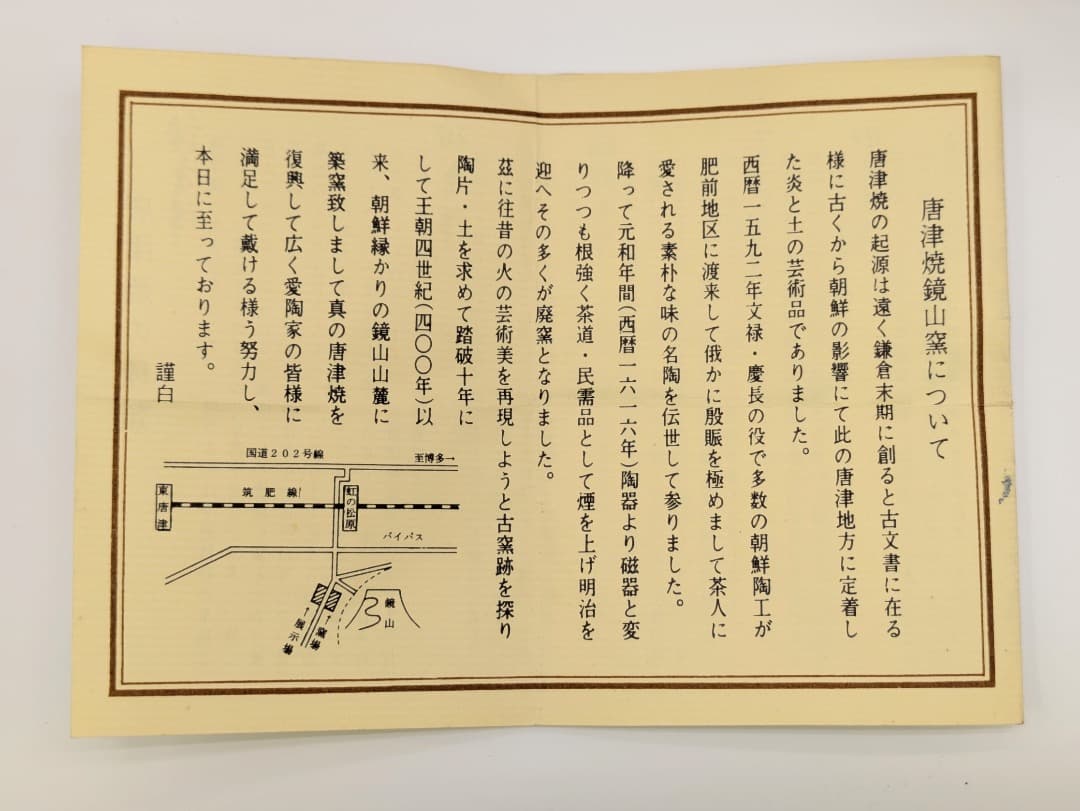 唐津焼鏡山窯について
唐津焼の起源は遠く鎌倉末期に創ると古文書に在る
様に古くから朝鮮の影響にて此の唐津地方に定着し
た炎と土の芸術品でありました。
西暦一五九二年文禄・慶長の役で多数の朝鮮陶工が
肥前地区に渡来して俄かに殷賑を極めまして茶人に
愛される素朴な味の名陶を伝世して参りました。
降って元和年間(西暦一六一六年)陶器より磁器と変
りつつも根強く茶道・民需品として煙を上げ明治を
迎へその多くが廃窯となりました。
茲に往昔の火の芸術美を再現しようと古窯跡を探り
陶片・土を求めて踏破十年に
して王朝四世紀(四〇〇年)以
来、朝鮮縁かりの鏡山山麓に
築窯致しまして真の唐津焼を
復興して広く愛陶家の皆様に
満足して戴ける様う努力し、
本日に至っております。
謹白
国道202号線
至博多→
筑肥線
東唐津
虹の松原
バイパス
鏡山
↑窯場
↑展示場